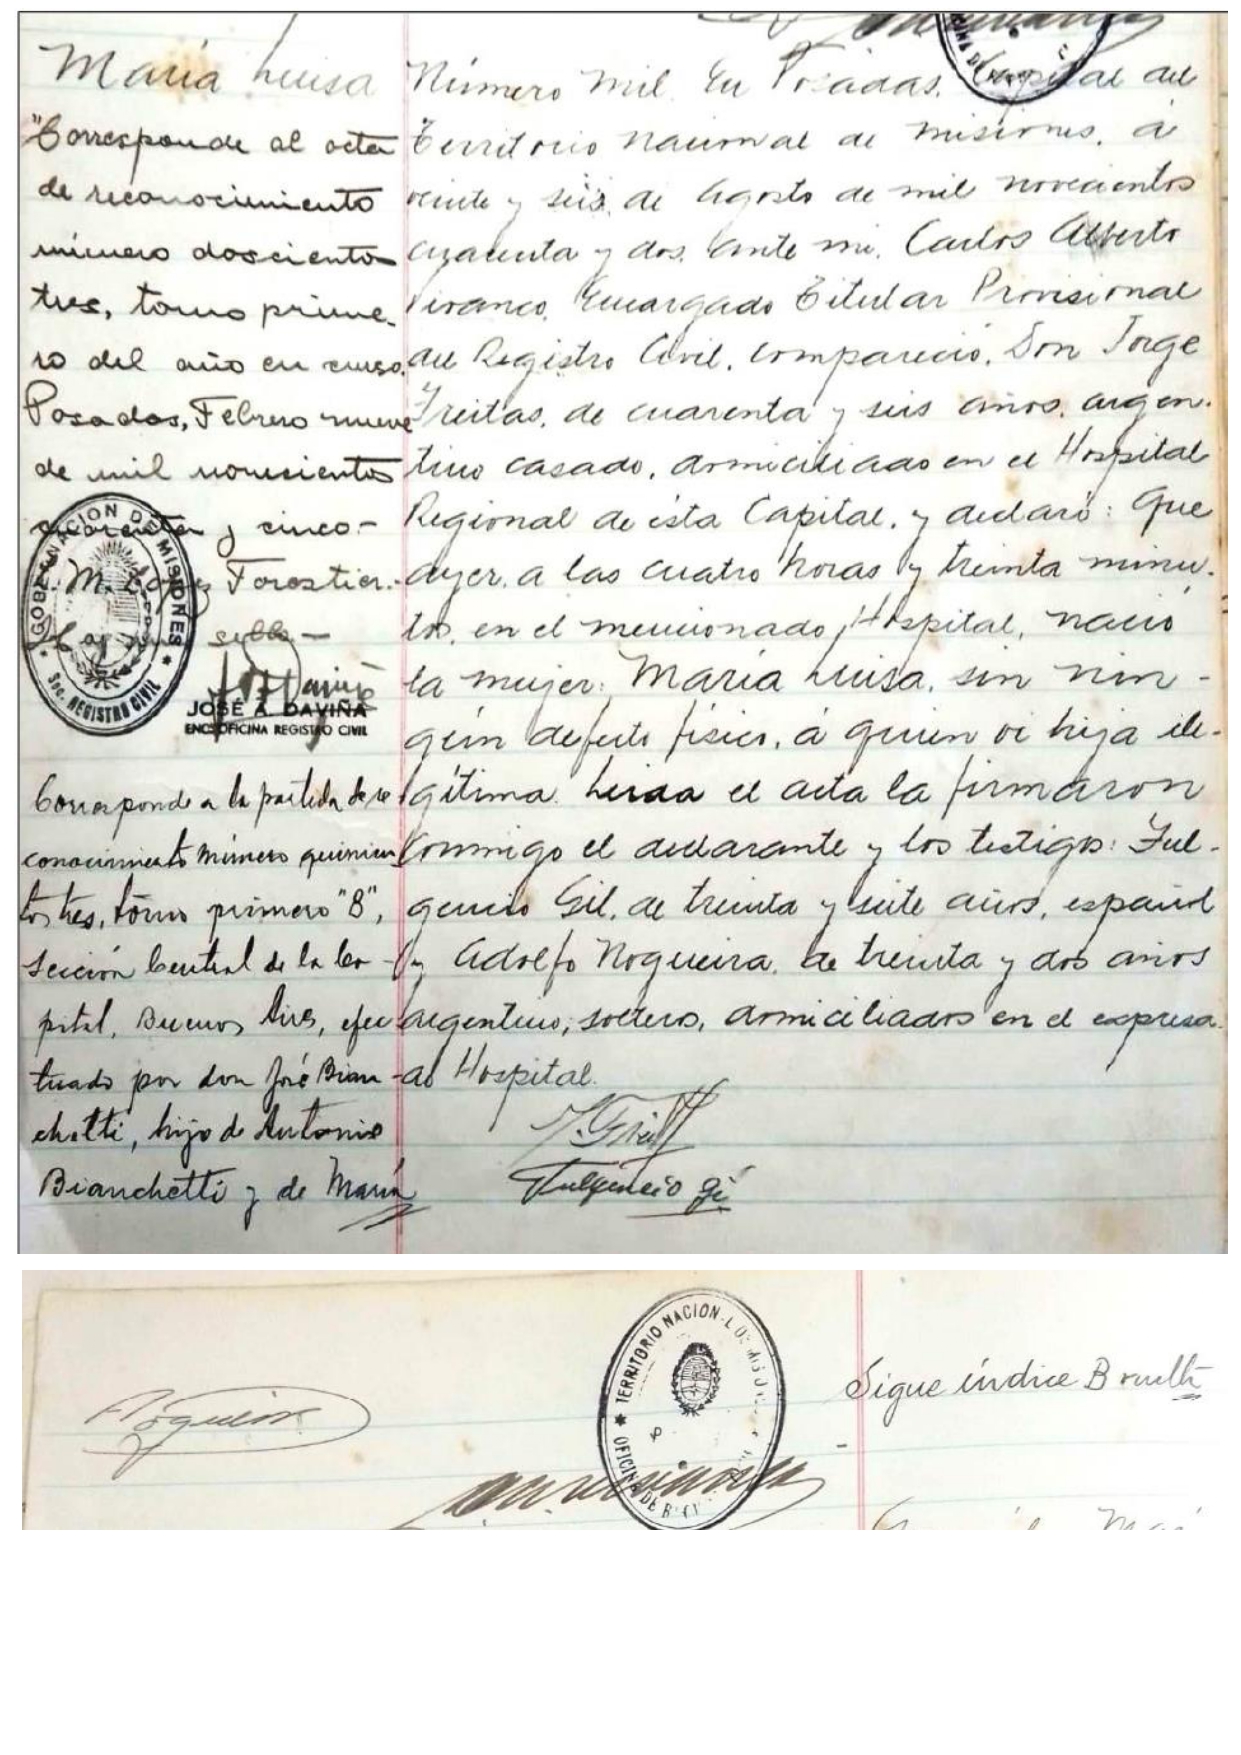 María Luisa
"Corresponde al acta
de reconocimiento
número doscientos
tres, tomo prime-
ro del año en curso.
Posadas, Febrero nueve
de mil novecientos
cuarenta y cinco-
M. López Forastier.-
Hay un sello-
GOBERNACION DE MISIONES
Sec. REGISTRO CIVIL
JOSÉ A. DAVIÑA
ENC. OFICINA REGISTRO CIVIL
Corresponde a la partida de re
conocimiento número quinien
tos tres, tomo primero "B",
Sección Central de la Ca-
pital, Buenos Aires, efec
tuado por don José Bian-
chetti, hijo de Antonio
Bianchetti y de María
Número mil. En Posadas, Capital del
Territorio Nacional de Misiones, á
veinte y seis de Agosto de mil novecientos
cuarenta y dos, ante mi, Carlos Alberto
Vivanco, Encargado Titular Provisional
del Registro Civil, compareció, Don Jorge
Freitas, de cuarenta y seis años, argen-
tino casado, domiciliado en el Hospital
Regional de ésta Capital, y declaró: Que
ayer, a las cuatro horas y treinta minu-
tos, en el mencionado Hospital, nació
la mujer: María Luisa, sin nin-
gún defecto físico, á quien vi hija ile-
gítima. Leida el acta la firmaron
conmigo el declarante y los testigos: Ful-
gencio Gil, de treinta y siete años, español
y Adolfo Nogueira, de treinta y dos años
argentino, solteros, domiciliados en el expresa
do Hospital.
Fulgencio Gil
A Nogueira
TERRITORIO NACIONAL DE MISIONES
OFICINA DE
Sigue índice B vuelta